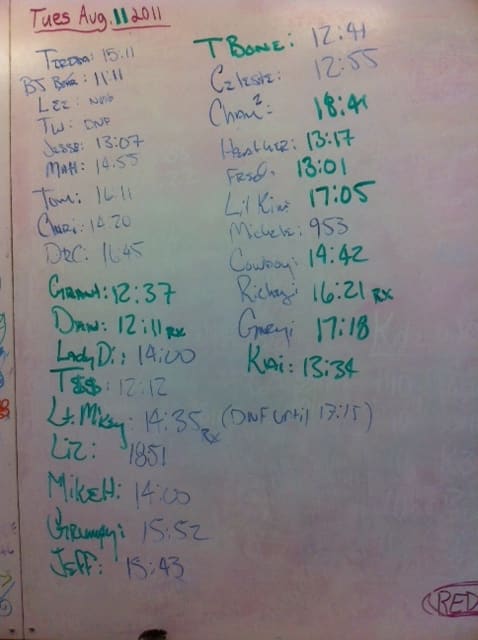 Tues Aug. 11 2011
Teresa: 15:11
BJ Bear: 11:11
Lee:
TW: DNF
Jesse: 13:07
Matt: 14:55
Tom: 16:11
Chari: 14:20
Doc: 16:45
Grant: 12:37
Dan: 12:11 RX
Lady Di: 14:00
T$$: 12:12
Lt. Mikey: 14:35 RX (DNF until 17:15)
Liz: 1851
Mike H: 14:00
Grumpy: 15:52
Jeff: 15:43
T Bone: 12:41
Celeste: 12:55
Chani²: 18:41
Heather: 13:17
Fred: 13:01
Lil Kim: 17:05
Michele: 953
Cowboy: 14:42
Richey: 16:21 RX
Gary: 17:18
Kai: 13:34
RED